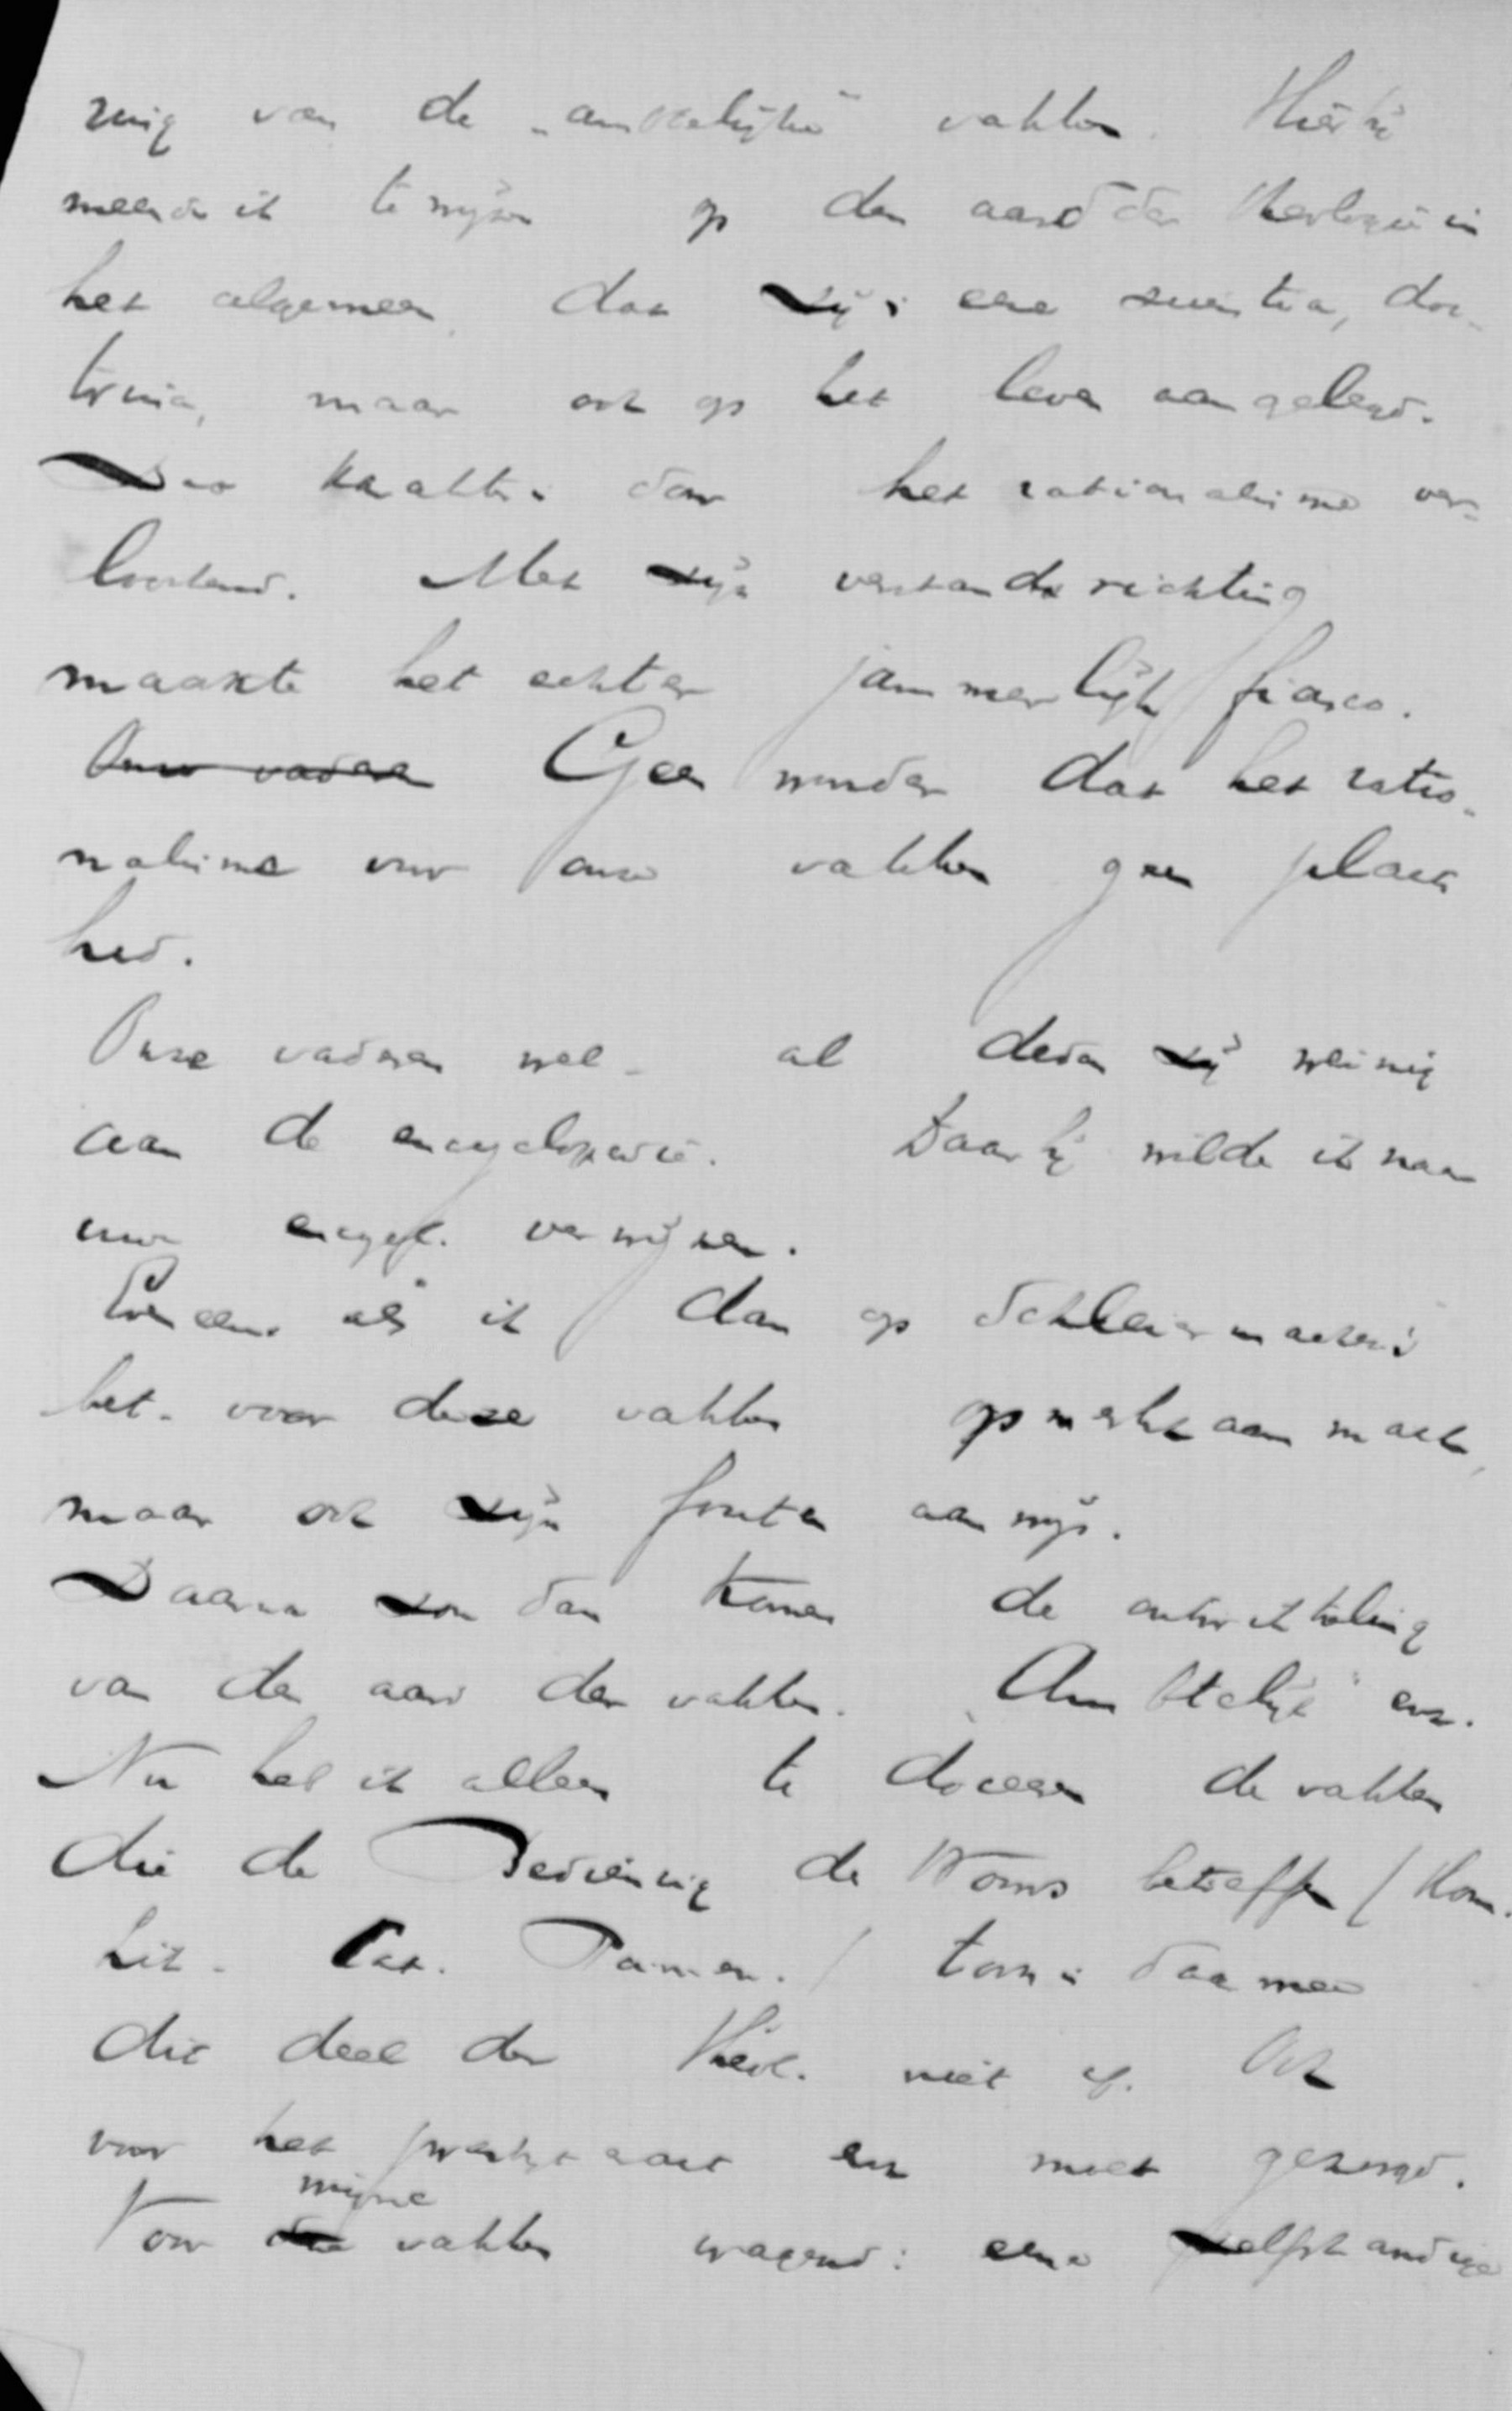 ring van de „ambtelijke" vakken. Hierbij
meende ik te wijzen op den aard der theologie in
het algemeen, dat zij is eene scientia, doc-
trina, maar ook op het leven aangelegd.
Dit karakter door het rationalisme ver-
loochend. Met zijn verstandsrichting
maakte het echter jammerlijk fiasco.
Onze vaderen Geen wonder dat het ratio-
nalisme voor onze vakken geen plaats
had.
Onze vaderen wel - al deden zij weinig
aan de encyclopedie. Daarbij wilde ik naar
uw encycl. verwijzen.
Eveneens als ik dan op Schleiermachers
bet. voor deze vakken opmerkzaam maak,
maar ook zijn fouten aanwijs.
Daarna zou dan komen de ontwikkeling
van den aard der vakken. „Ambtelijk" enz.
Nu heb ik alleen te doceeren de vakken
die de Bediening des Woords betreffen (Hom.
Lit. Cat. Poimen.) toch is daarmee
dit deel der Theol. niet af. Ook
voor het presbyteraat enz moet gezorgd.
Voor mijne vakken vragend: eene zelfstandige